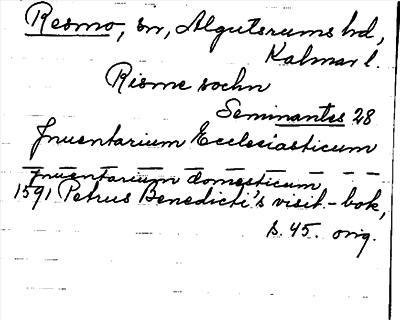 Resmo, sn, Algutsrums hd,
Kalmar l.
Risme sochn
Seminantes 28
Inuentarium Ecclesiasticum
Inuentarium domesticum
1591 Petrus Benedicti's visit.-bok,
s. 45. orig.